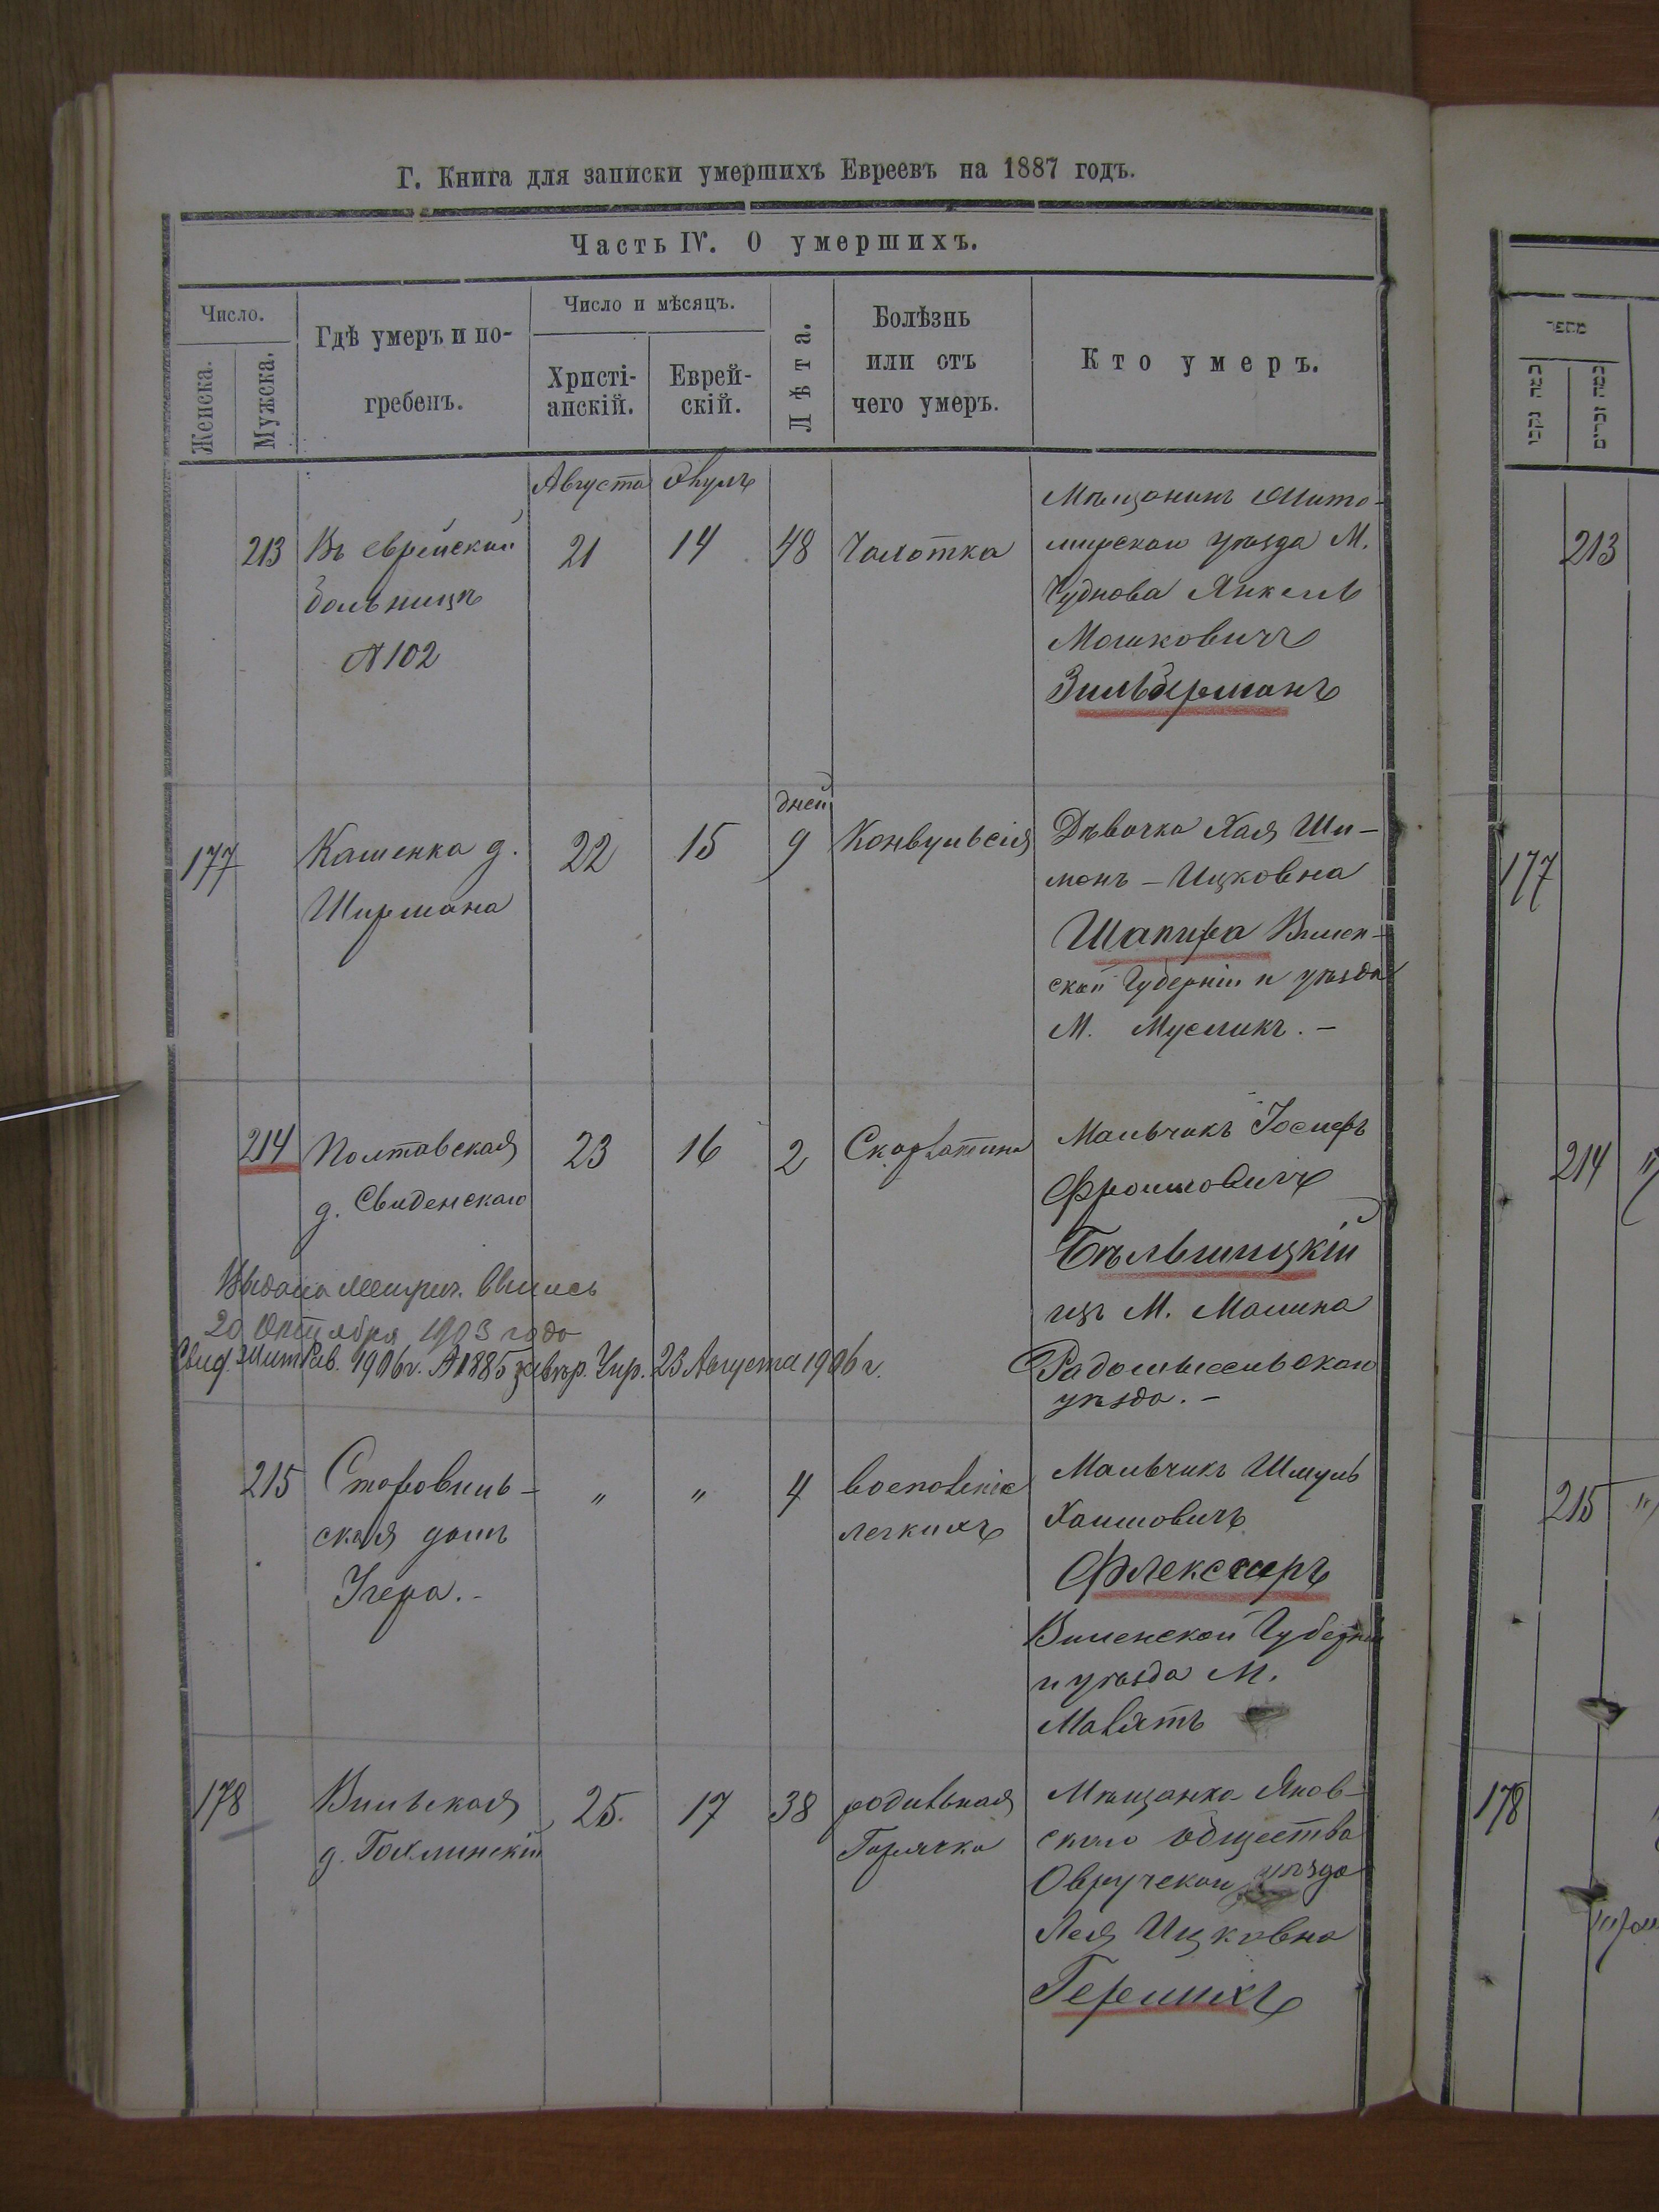 Г. Книга для записки умершихъ Евреевъ на 1887 годъ.
Часть IV. О умершихъ.
Число.
Женска.
Мужска.
Гдѣ умеръ и по-
гребенъ.
Число и мѣсяцъ.
Христі-
анскій.
Еврей-
скій.
Лѣта.
Болѣзнь
или отъ
чего умеръ.
Кто умеръ.
Августа
213
Въ еврейской
больницѣ
№ 102
21
14
48
Чахотка
Мѣщанинъ Жито-
мирскаго уѣзда М.
Чуднова Янкель
Мошковичъ
Зильберманъ
177
Кашенка д.
Ширмана
22
15
дней
9
Конвульсія
Дѣвочка Хая Ши-
монъ-Ицковна
Шапира Вилен-
ской Губерніи и уѣзда
М.
214
Полтавская
д. Свиденскаго
23
16
2
Скарлатина
Мальчикъ Іосифъ
Фроимовичъ
Бѣльшицкій
изъ М. Малина
Радомысльскаго
уѣзда.-
Выдана Метрич. Выпись
20 Октября 1903 года
Свид. Жит Рав. 1906 г. № 1885 завѣр. Упр. 23 Августа 1906 г.
215
Старовиль-
ская домъ
Угера.-
"
"
4
воспаленіе
легкихъ
Мальчикъ Шмуль
Хаимовичъ
Флексеръ
Виленской Губерніи
и уѣзда М.
178
Вильская
25.
17
38
родильная
Горячка
Мѣщанка Янов-
скаго общества
Овручскаго уѣзда
Лея Ицковна
מספר
213
177
214
215
178